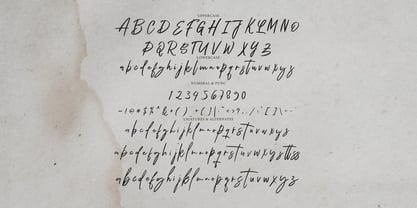 UPPERCASE
ABCDEFGHIJKLMNO
PQRSTUVWXYZ
LOWERCASE
abcdefghijklmnopqrstuvwxyz
NUMERAL & PUNC
1234567890
LIGATURES & ALTERNATES
abcdefghijklmnopqrstuvwxyz
abcdefghijklmnopqrstuvwxyz
abcdefghijklmnopqrstuvwxyz